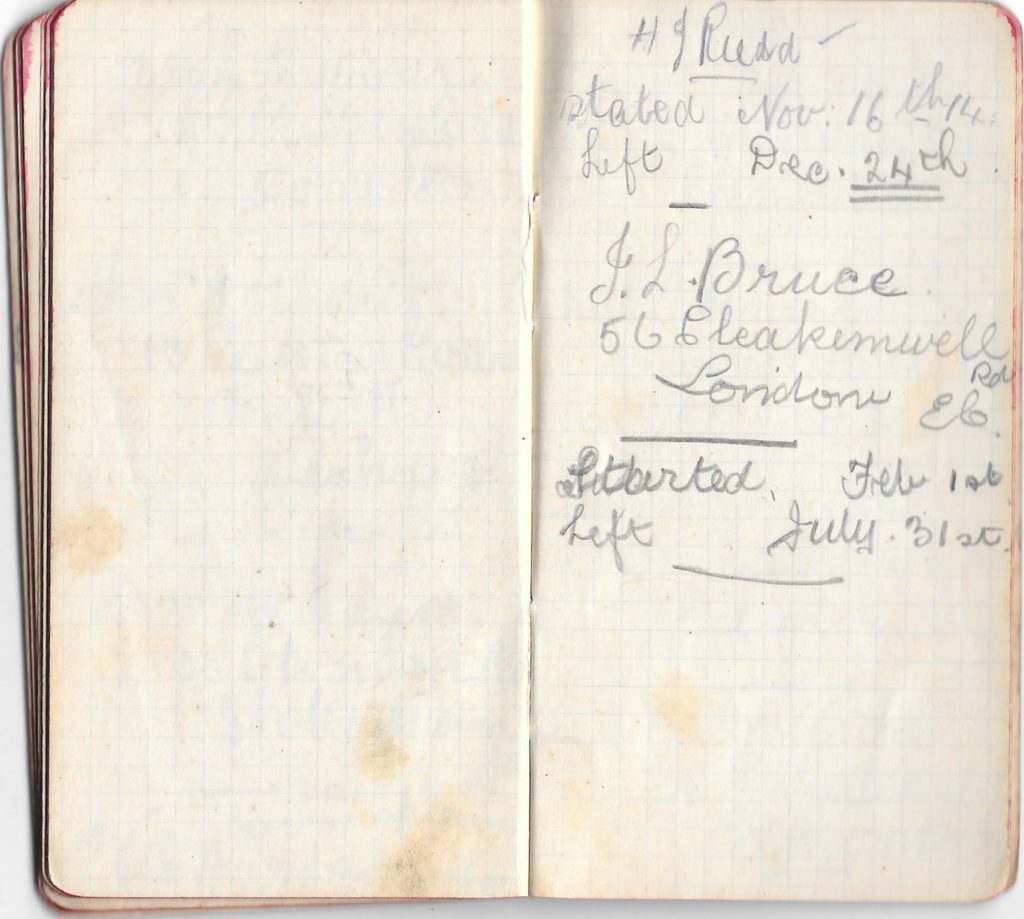 H J Rudd –
stated Nov: 16th 14.
Left Dec. 24th.
J. L. Bruce.
56 Cleakemwell
Rd
London EC.
Started, Feb 1st
Left July. 31st.